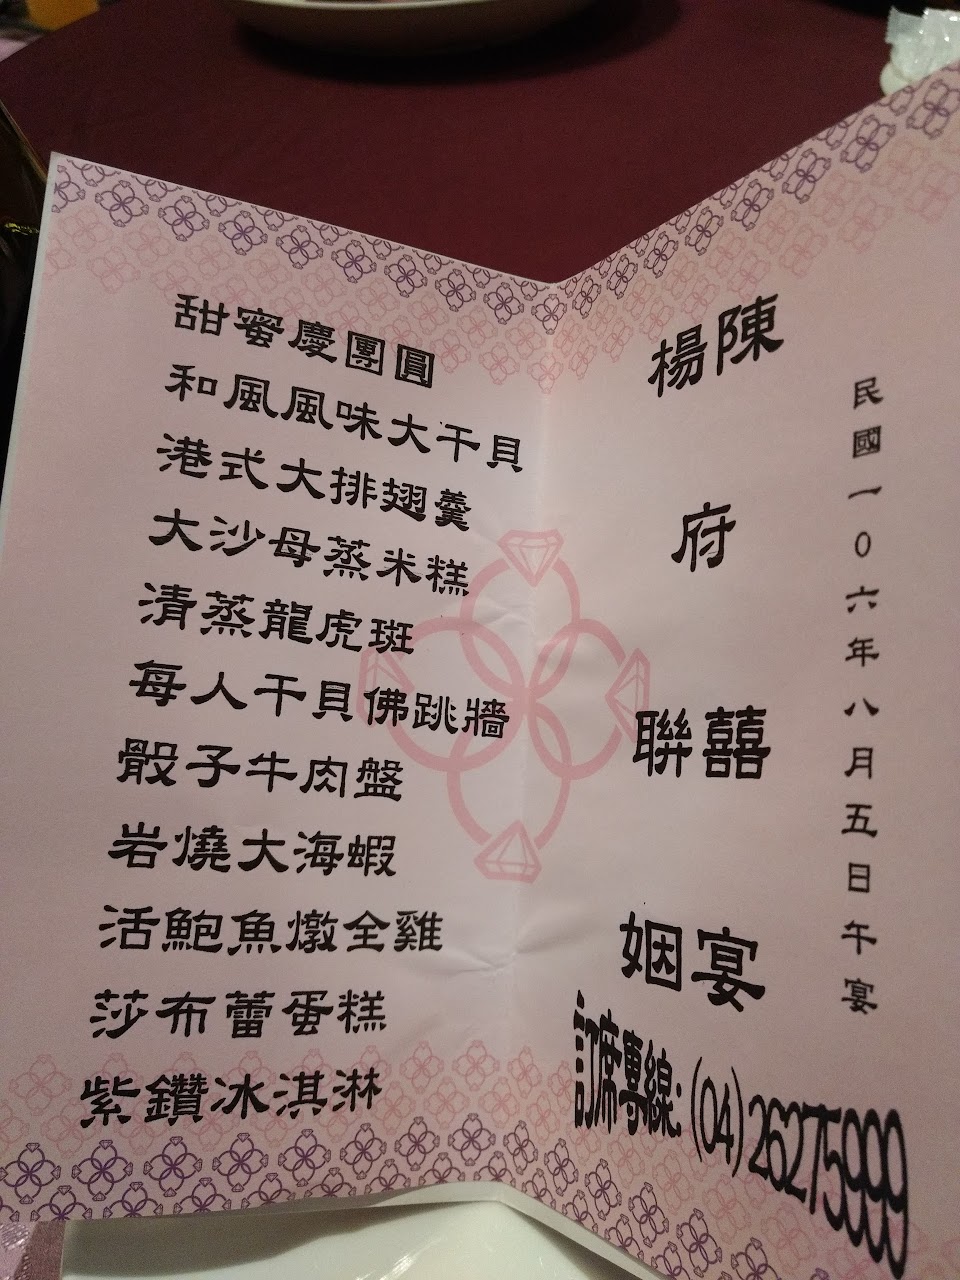 民國一0六年八月五日午宴
陳 府 囍 宴
楊 聯 姻
訂席專線:(04)26275999
甜蜜慶團圓
和風風味大干貝
港式大排翅羹
大沙母蒸米糕
清蒸龍虎斑
每人干貝佛跳牆
骰子牛肉盤
岩燒大海蝦
活鮑魚燉全雞
莎布蕾蛋糕
紫鑽冰淇淋